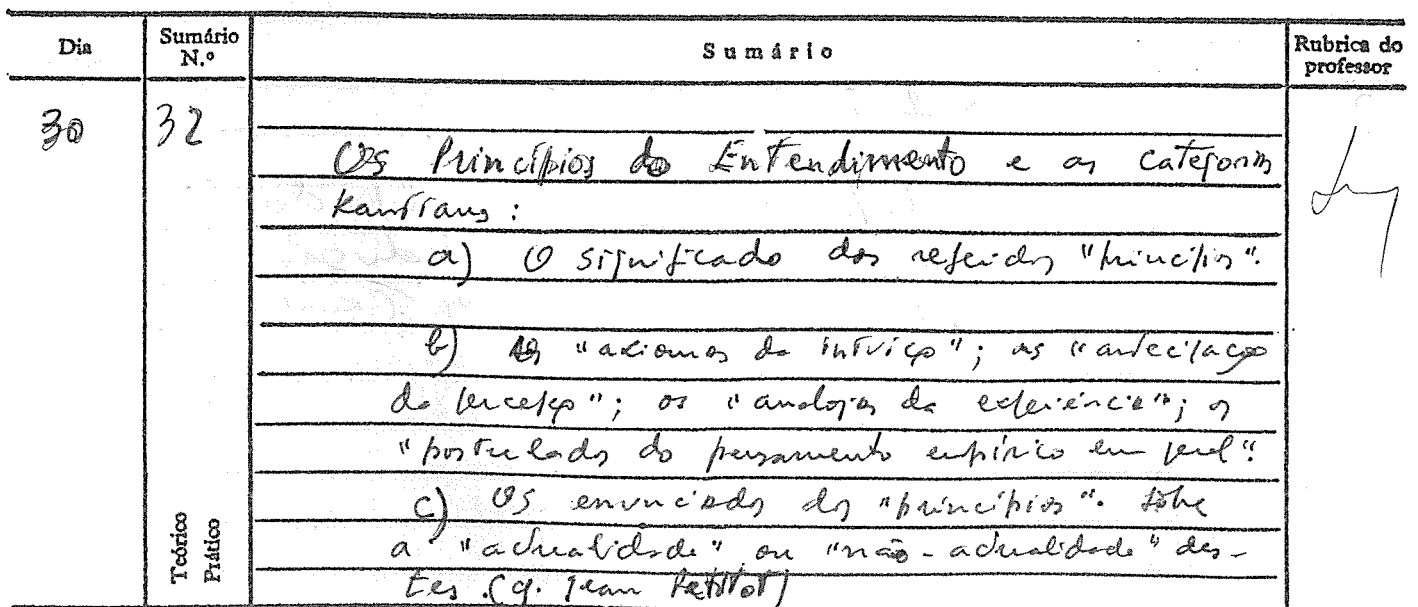 Dia Sumário N.º Sumário Rubrica do professor
30 32
Os Princípios do Entendimento e as categorias
Kantianas:
a) O significado dos referidos "princípios".
b) Os "axiomas da intuição"; as "antecipações
da percepção"; as "analogias da experiência"; os
"postulados do pensamento empírico em geral".
c) Os enunciados dos "princípios". Sobre
a "actualidade" ou "não-actualidade" des-
tes. (cf. Jean Petitot)
Teórico
Prático